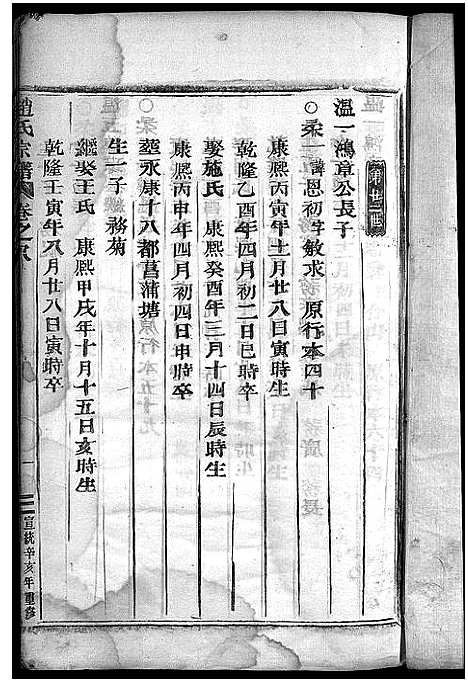 第廿二世
溫一鴻章公長子
○柔一諱恩初字敏求 原行本四十
康熙丙寅年十一月廿八日寅時生
乾隆乙酉年四月初二日巳時卒
娶施氏 康熙癸酉年三月十四日辰時生
康熙丙申年四月初四日申時卒
葬永康十八都菖蒲塘
生一子 務菊
繼娶王氏 康熙甲戌年十月十五日亥時生
乾隆壬寅年八月廿八日寅時卒
趙氏宗譜 卷之
宣統辛亥年重修